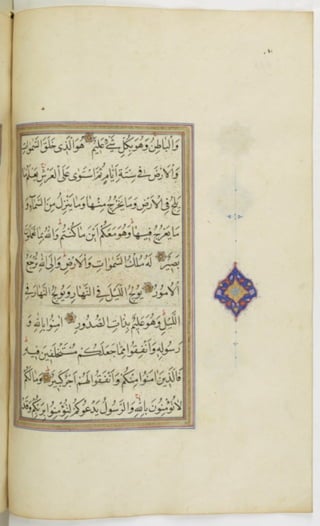 وَالْبَاطِنُ وَهُوَ بِكُلِّ شَيْءٍ عَلِيمٌ هُوَ الَّذِي خَلَقَ السَّمَوَاتِ
وَالْأَرْضَ فِي سِتَّةِ أَيَّامٍ ثُمَّ اسْتَوَى عَلَى الْعَرْشِ يَعْلَمُ مَا
يَلِجُ فِي الْأَرْضِ وَمَا يَخْرُجُ مِنْهَا وَمَا يَنْزِلُ مِنَ السَّمَاءِ وَ
مَا يَعْرُجُ فِيهَا وَهُوَ مَعَكُمْ أَيْنَ مَا كُنْتُمْ وَاللَّهُ بِمَا تَعْمَلُونَ
بَصِيرٌ لَهُ مُلْكُ السَّمَوَاتِ وَالْأَرْضِ وَإِلَى اللَّهِ تُرْجَعُ
الْأُمُورُ يُولِجُ اللَّيْلَ فِي النَّهَارِ وَيُولِجُ النَّهَارَ فِي
اللَّيْلِ وَهُوَ عَلِيمٌ بِذَاتِ الصُّدُورِ آمِنُوا بِاللَّهِ وَ
رَسُولِهِ وَأَنْفِقُوا مِمَّا جَعَلَكُمْ مُسْتَخْلَفِينَ فِيهِ
فَالَّذِينَ آمَنُوا مِنْكُمْ وَأَنْفَقُوا لَهُمْ أَجْرٌ كَبِيرٌ وَمَا لَكُمْ
لَا تُؤْمِنُونَ بِاللَّهِ وَالرَّسُولُ يَدْعُوكُمْ لِتُؤْمِنُوا بِرَبِّكُمْ وَقَدْ